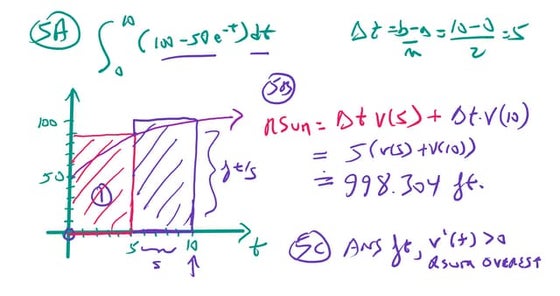 5A ∫₀¹⁰ (100-50e^-t) dt
Δt = b-a/n = 10-0/2 = 5
5B
RSum = Δt V(5) + Δt·V(10)
= 5(V(5)+V(10))
= 998.304 ft.
100
50
1
ft/s
5 10 t
5
5C ANS ft, V'(t)>0
RSUM OVEREST